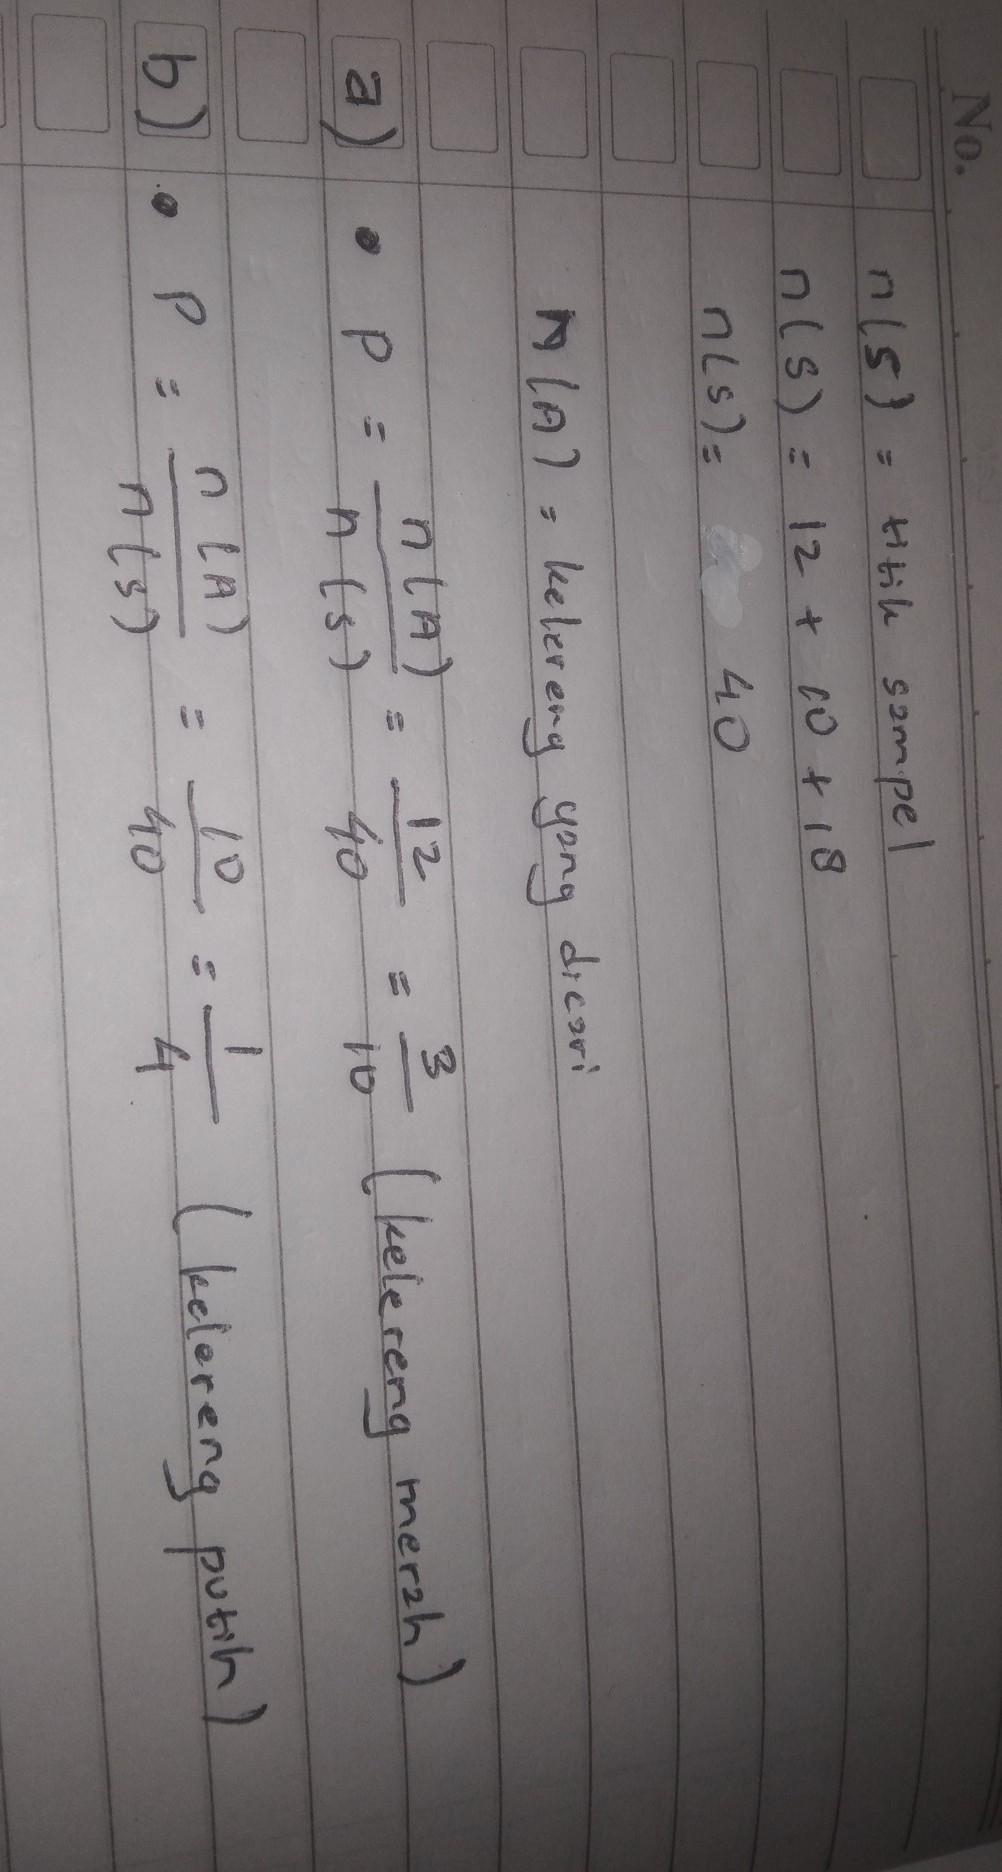 No.
n(s) = titik sampel
n(s) = 12 + 10 + 18
n(s) = 40
n(A) = kelereng yang dicari
a) • P = n(A)/n(s) = 12/40 = 3/10 (kelereng merah)
b) • P = n(A)/n(s) = 10/40 = 1/4 (kelereng putih)